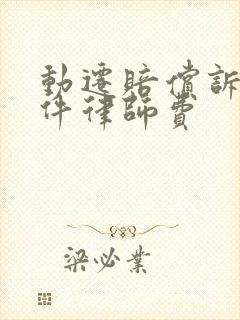 動遷賠償訴
件律師費
梁必業